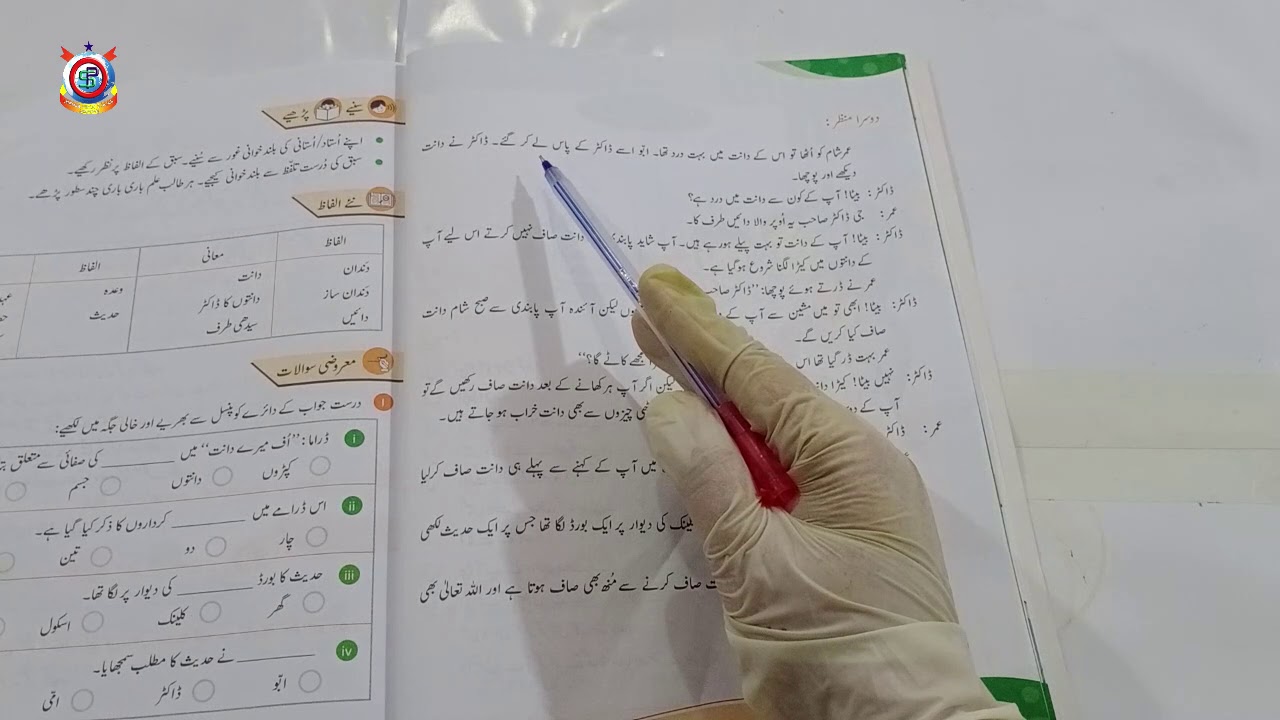 دوسرا منظر :
عمر شام کو اُٹھا تو اس کے دانت میں بہت درد تھا۔ ابّو اسے ڈاکٹر کے پاس لے کر گئے۔ ڈاکٹر نے دانت
دیکھے اور پوچھا۔
ڈاکٹر: بیٹا! آپ کے کون سے دانت میں درد ہے؟
عمر: جی ڈاکٹر صاحب یہ اُوپر والا دائیں طرف کا۔
ڈاکٹر: بیٹا! آپ کے دانت تو بہت پیلے ہورہے ہیں۔ آپ شاید دانت صاف نہیں کرتے اس لیے آپ
کے دانتوں میں کیڑا لگنا شروع ہوگیا ہے۔
عمر نے ڈرتے ہوئے پوچھا: ”ڈاکٹر
ڈاکٹر: بیٹا! ابھی تو میں مشین سے آپ کے لیکن آئندہ آپ پابندی سے صبح شام دانت
صاف کیا کریں گے۔
عمر بہت ڈر گیا تھا اس مجھے کاٹے گا؟“
ڈاکٹر: نہیں بیٹا! کیڑا لیکن اگر آپ ہر کھانے کے بعد دانت صاف رکھیں گے تو
آپ کے چیزوں سے بھی دانت خراب ہو جاتے ہیں۔
عمر: ڈاکٹر
میں آپ کے کہنے سے پہلے ہی دانت صاف کرلیا
کی دیوار پر ایک بورڈ لگا تھا جس پر ایک حدیث لکھی
صاف کرنے سے مُنھ بھی صاف ہوتا ہے اور اللہ تعالیٰ بھی
سنیے پڑھیے
• اپنے اُستاد/اُستانی کی بلند خوانی غور سے سُنیے۔ سبق کے الفاظ پر نظر رکھیے۔
• سبق کی دُرست تلفّظ سے بلند خوانی کیجیے۔ ہر طالب علم باری باری چند سطور پڑھے۔
نئے الفاظ
الفاظ معانی الفاظ
دَندان دانت وعدہ
دَندان ساز دانتوں کا ڈاکٹر حدیث
دائیں سیدھی طرف
معروضی سوالات
۱ درست جواب کے دائرے کو پنسل سے بھریے اور خالی جگہ میں لکھیے:
i ڈراما: ”اُف میرے دانت“ میں ________ کی صفائی سے متعلق
کپڑوں دانتوں جسم
ii اس ڈرامے میں ________ کرداروں کا ذکر کیا گیا ہے۔
چار دو تین
iii حدیث کا بورڈ ________ کی دیوار پر لگا تھا۔
گھر کلینک اسکول
iv ________ نے حدیث کا مطلب سمجھایا۔
ابّو ڈاکٹر امّی